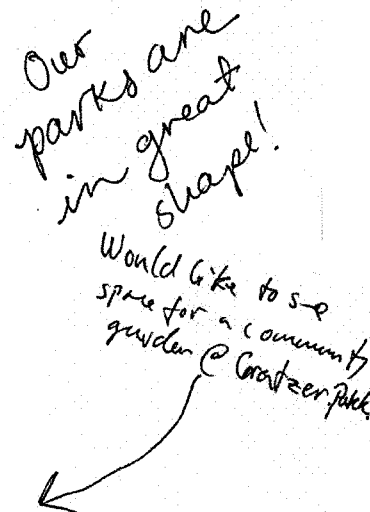 Our
parks are
in great
shape!
Would like to see
space for a community
garden @ Gratzer Park